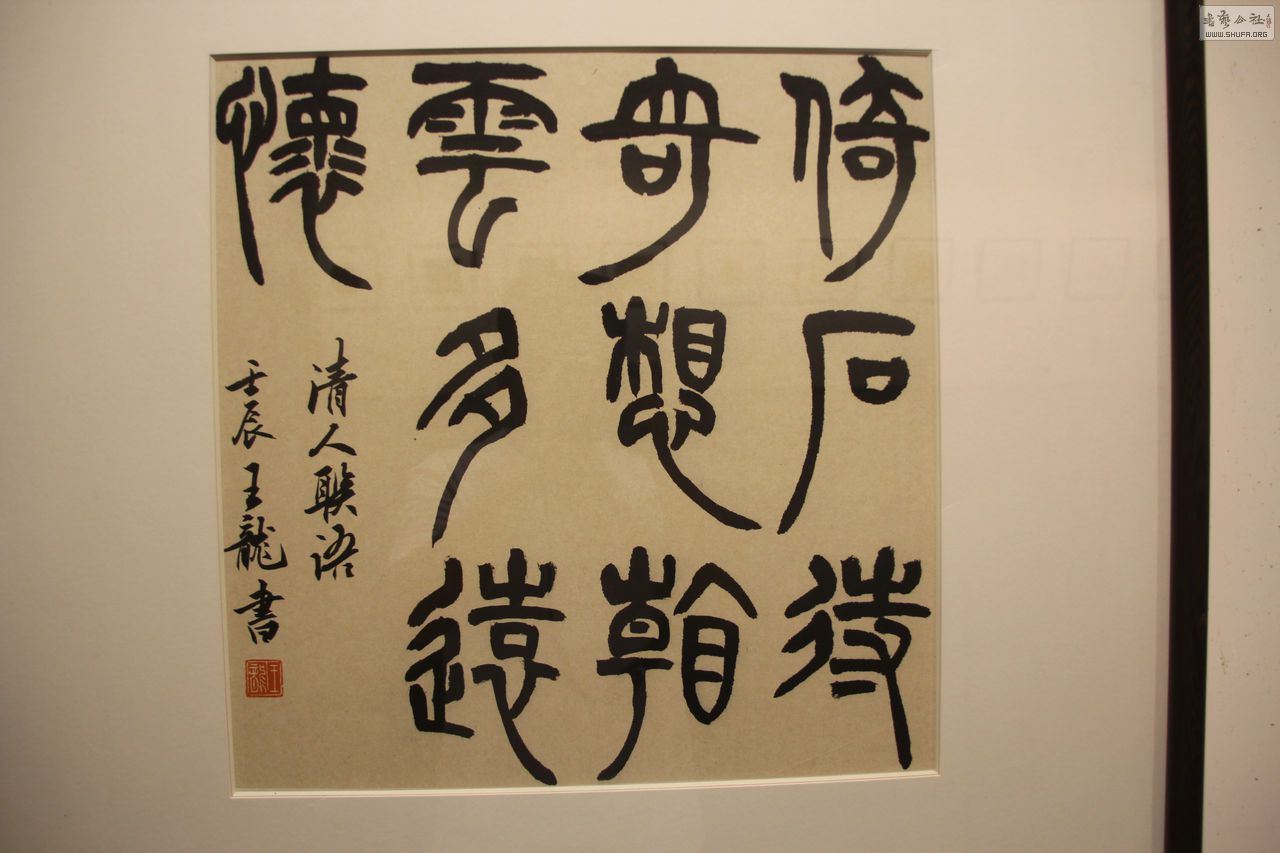 倚石待
奇想看
雲多遠
懷
清人聯語
壬辰王龍書
王龍
書藝公社
WWW.SHUFA.ORG